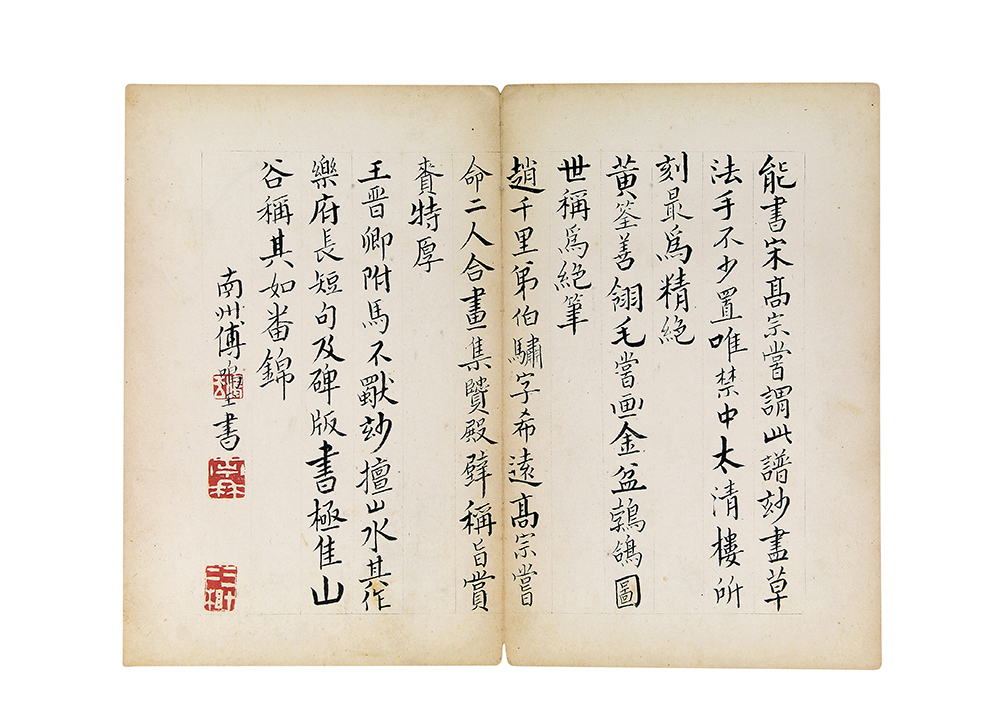 能書宋高宗嘗謂此譜玅盡草
法手不少置唯禁中太清樓所
刻最爲精絶
黄筌善翎毛嘗画金盆鵓鴿圖
世稱爲絶筆
趙千里弟伯驌字希遠高宗嘗
命二人合畫集贒殿䢃稱旨賞
賚特厚
王晋卿附馬不獸玅擅山水其作
樂府長短句及碑版書極佳山
谷稱其如番錦
南州傅書